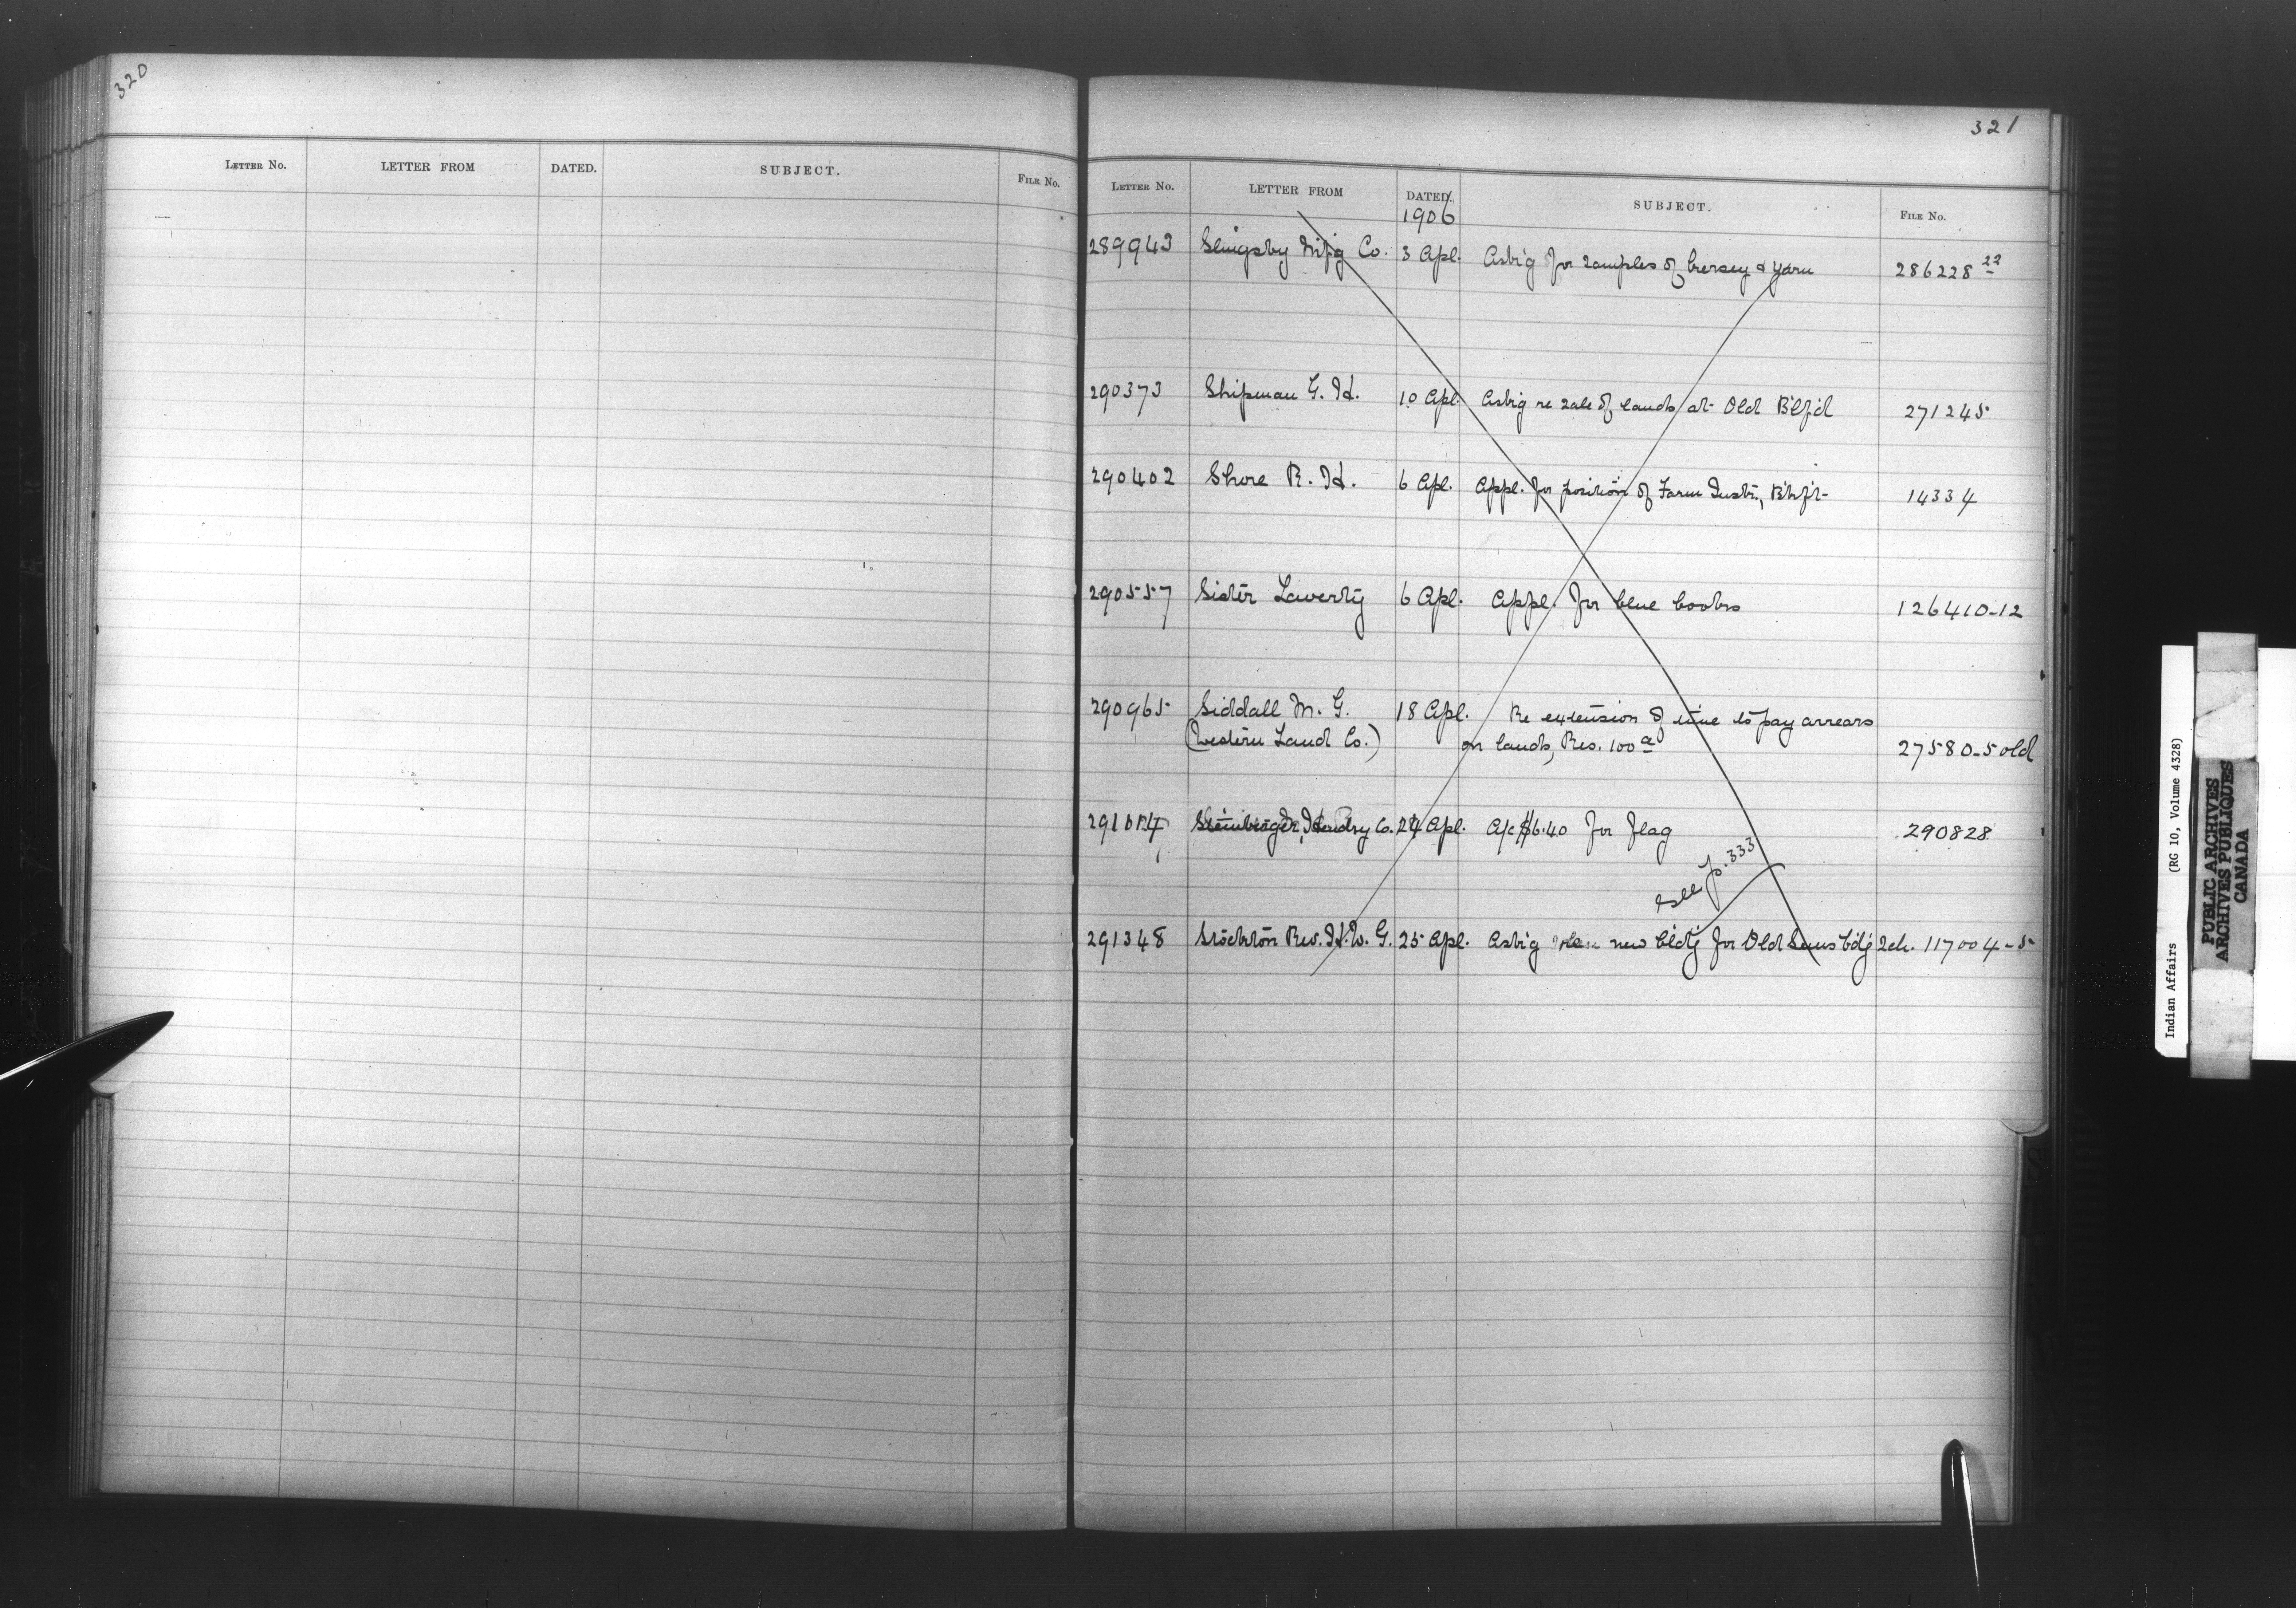 320
LETTER NO. LETTER FROM DATED. SUBJECT. FILE NO.
321
LETTER NO. LETTER FROM DATED. SUBJECT. FILE NO.
1906
289943 Slingsby Mfg Co. 3 Apl. Ask'g for samples of kersey & yarn 286228 22
290373 Shipman G. H. 10 Apl. Ask'g re sale of lands at Old B'lf'd 271245
290402 Shore R. H. 6 Apl. Appl. for position of Farm Instr., 14334
290557 Sister Laverty 6 Apl. Appl. for blue books 126410-12
290965 Siddall M. G. 18 Apl. Re extension of time to pay arrears
(Western Land Co.) on lands, Res. 100 a 27580-5 old
Hendry Co. 24 Apl. A/c $6.40 for flag 290828
see p. 333
291348 Stockton Rev. H. W. G. 25 Apl. Ask'g new bldg for Old Suns bdg Sch. 117004-5
Indian Affairs (RG 10, Volume 4328)
PUBLIC ARCHIVES
ARCHIVES PUBLIQUES
CANADA